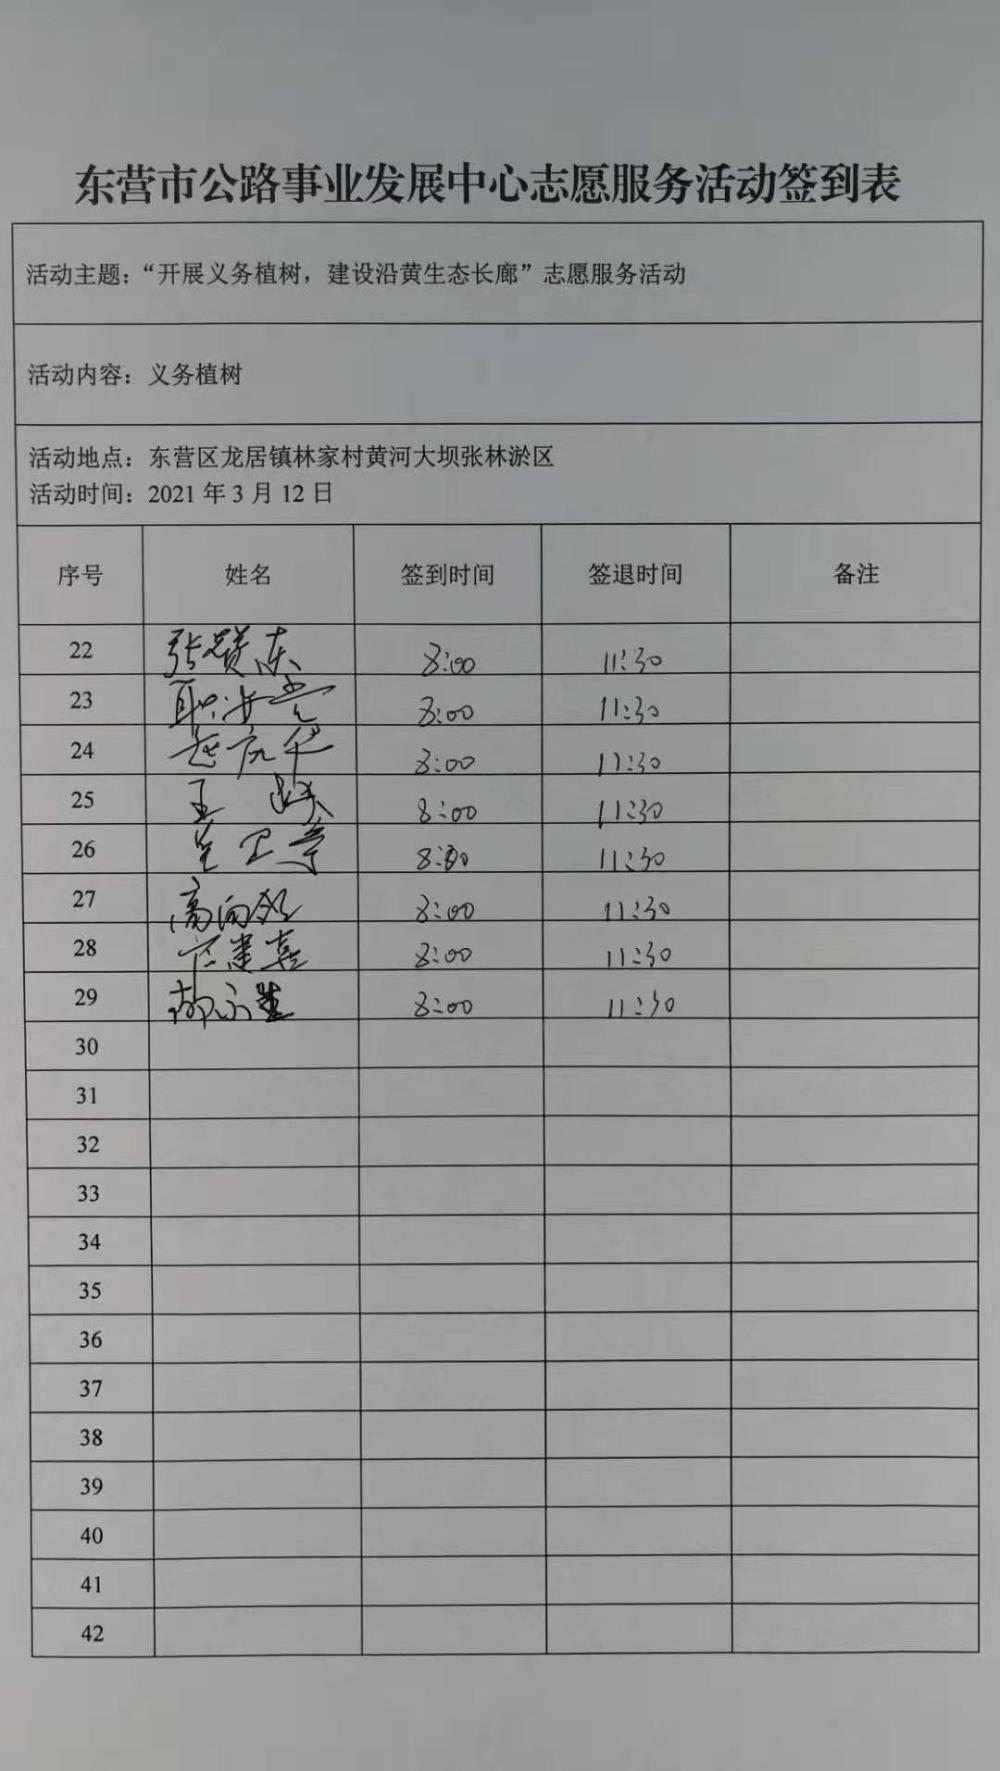 东营市公路事业发展中心志愿服务活动签到表
活动主题：“开展义务植树，建设沿黄生态长廊”志愿服务活动
活动内容：义务植树
活动地点：东营区龙居镇林家村黄河大坝张林淤区
活动时间：2021 年 3 月 12 日
序号 姓名 签到时间 签退时间 备注
22 张赞东 8:00 11:30
23 8:00 11:30
24 8:00 11:30
25 王 8:00 11:30
26 8:00 11:30
27 高向 8:00 11:30
28 建喜 8:00 11:30
29 胡永生 8:00 11:30
30
31
32
33
34
35
36
37
38
39
40
41
42